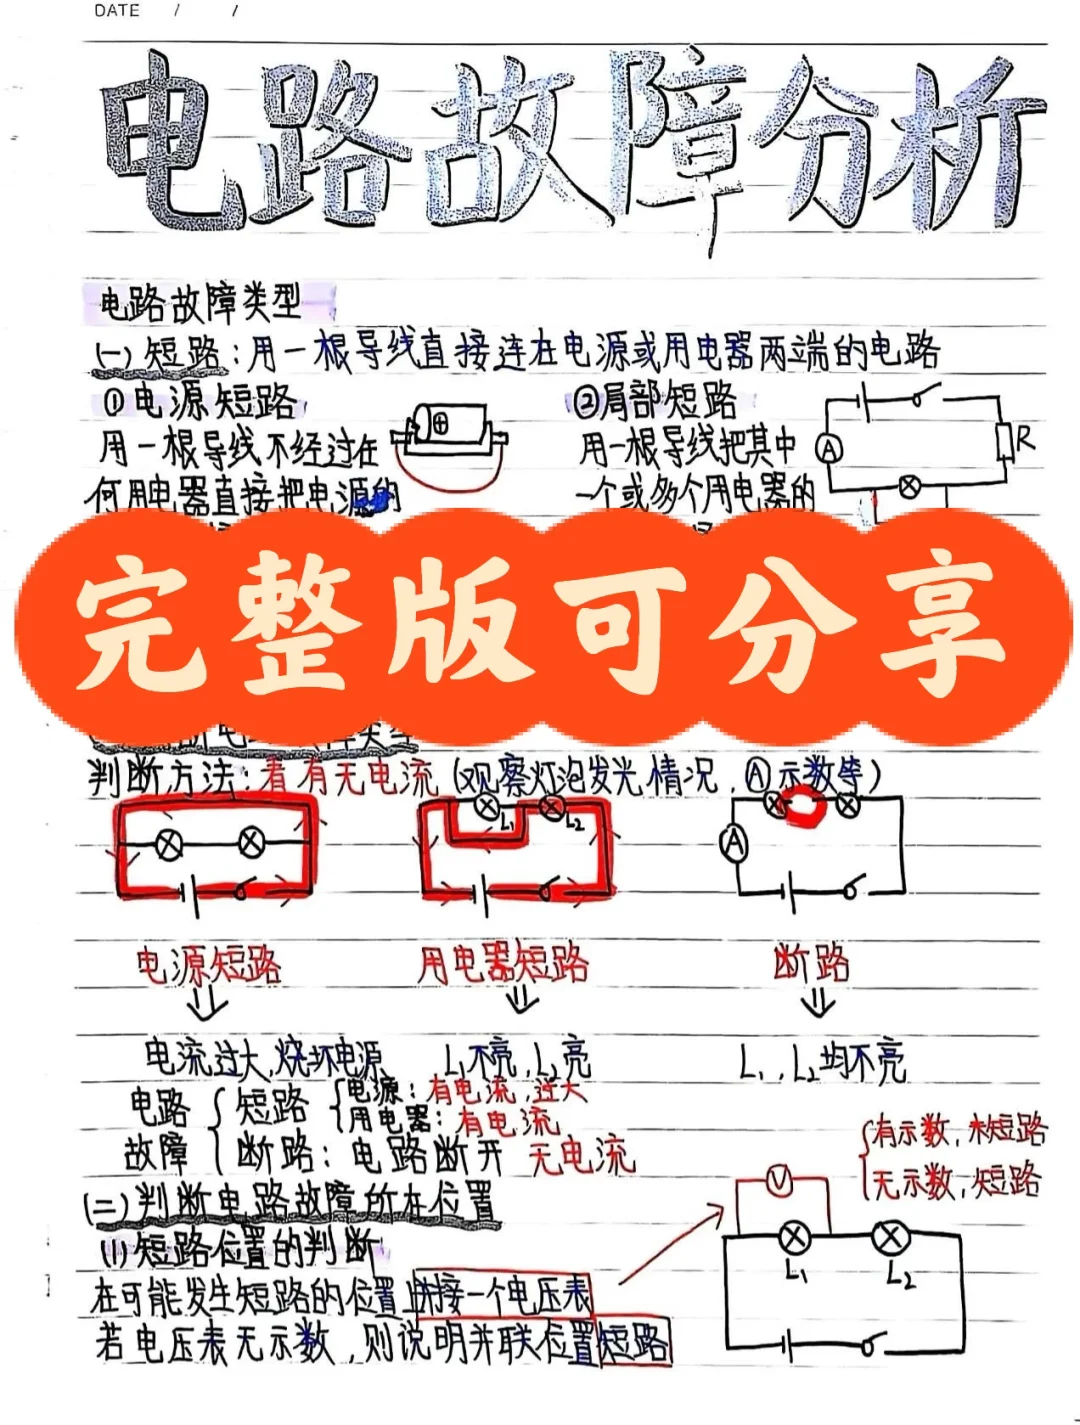 DATE / /
电路故障分析
电路故障类型
(一)短路:用一根导线直接连在电源或用电器两端的电路
①电源短路
用一根导线不经过任
何用电器直接把电源的
②局部短路
用一根导线把其中
一个或多个用电器的
A
R
完整版可分享
判断方法:看有无电流(观察灯泡发光情况,Ⓐ示数等)
L₁ L₂
A
电源短路 用电器短路 断路
电流过大,烧坏电源 L₁不亮,L₂亮 L₁,L₂均不亮
电路故障
短路
电源:有电流,过大
用电器:有电流
断路:电路断开 无电流
有示数,未短路
无示数,短路
V
L₁ L₂
(二)判断电路故障所在位置
(1)短路位置的判断
在可能发生短路的位置上并接一个电压表
若电压表无示数,则说明并联位置短路